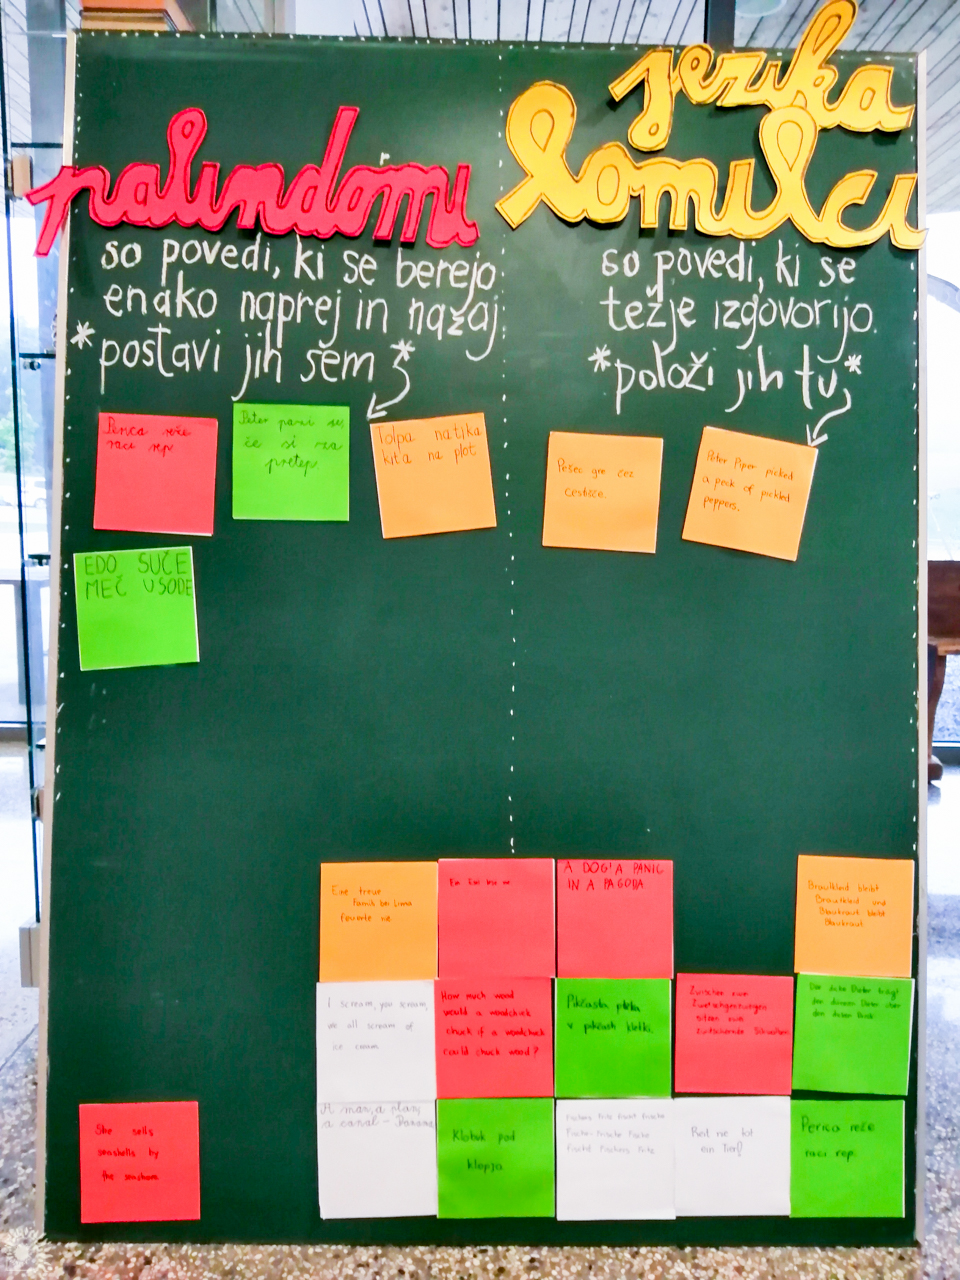 palindromi
jezika
lomilci
so povedi, ki se berejo
enako naprej in nazaj.
*postavi jih sem*
so povedi, ki se
težje izgovorijo.
*položi jih tu*
Perica reče
raci rep
če si za
pretep.
Tolpa natika
kita na plot
Pešec gre čez
cestišče.
Peter Piper picked
a peck of pickled
peppers.
EDO SUČE
MEČ V SODE
Eine treue
Familie bei Lima
feuerte nie
A DOG! A PANIC
IN A PAGODA
Brautkleid bleibt
Brautkleid und
Blaukraut bleibt
Blaukraut.
I scream, you scream,
we all scream of
ice cream.
How much wood
would a woodchuck
chuck if a woodchuck
could chuck wood?
Pikčasta
v pikčasti kletki.
Zwischen zwei
Zwetschgenzweigen
sitzen zwei
zwitschernde
Der dicke Dieter trägt
den dünnen Dieter über
den
She sells
seashells by
the seashore.
A man, a plan,
a canal - Panama
Klobuk pod
klopjo
Fischers Fritz fischt frische
Fische, frische Fische
fischt Fischers Fritz
Reit nie tot
ein Tier!
Perica reže
raci rep.